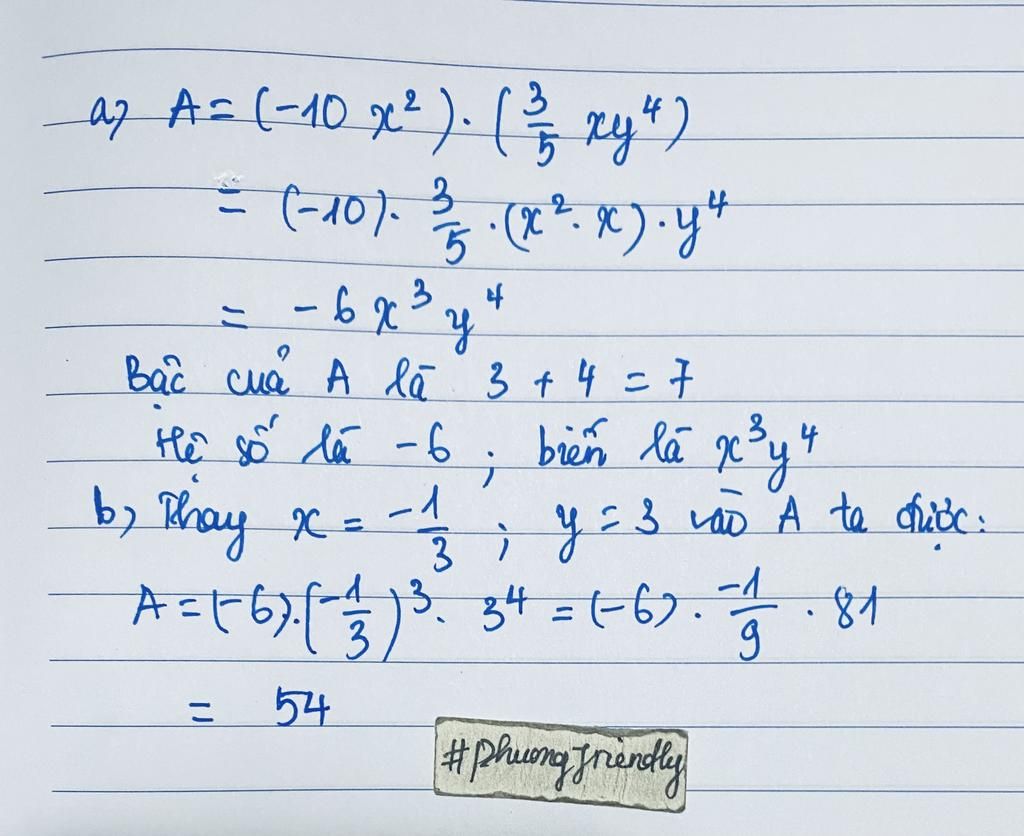 a) A = (-10 x²) . (3/5 xy⁴)
= (-10) . 3/5 . (x² . x) . y⁴
= -6 x³ y⁴
Bậc của A là 3 + 4 = 7
Hệ số là -6 ; biến là x³y⁴
b) Thay x = -1/3 ; y = 3 vào A ta được:
A = (-6).(-1/3)³ . 3⁴ = (-6) . -1/9 . 81
= 54
#phuongfriendly